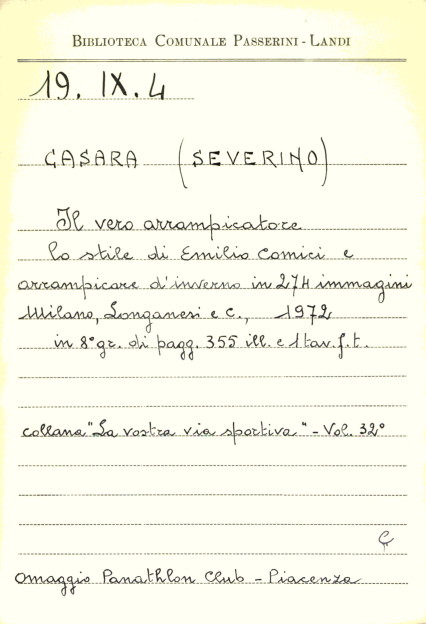 BIBLIOTECA COMUNALE PASSERINI - LANDI
19. IX. 4
CASARA (SEVERINO)
Il vero arrampicatore
lo stile di Emilio Comici e
arrampicare d'inverno in 274 immagini
Milano, Longanesi e C., 1972
in 8° gr. di pagg. 355 ill. e 1 tav. f. t.
collana "La vostra via sportiva" - Vol. 32°
Omaggio Panathlon Club - Piacenza